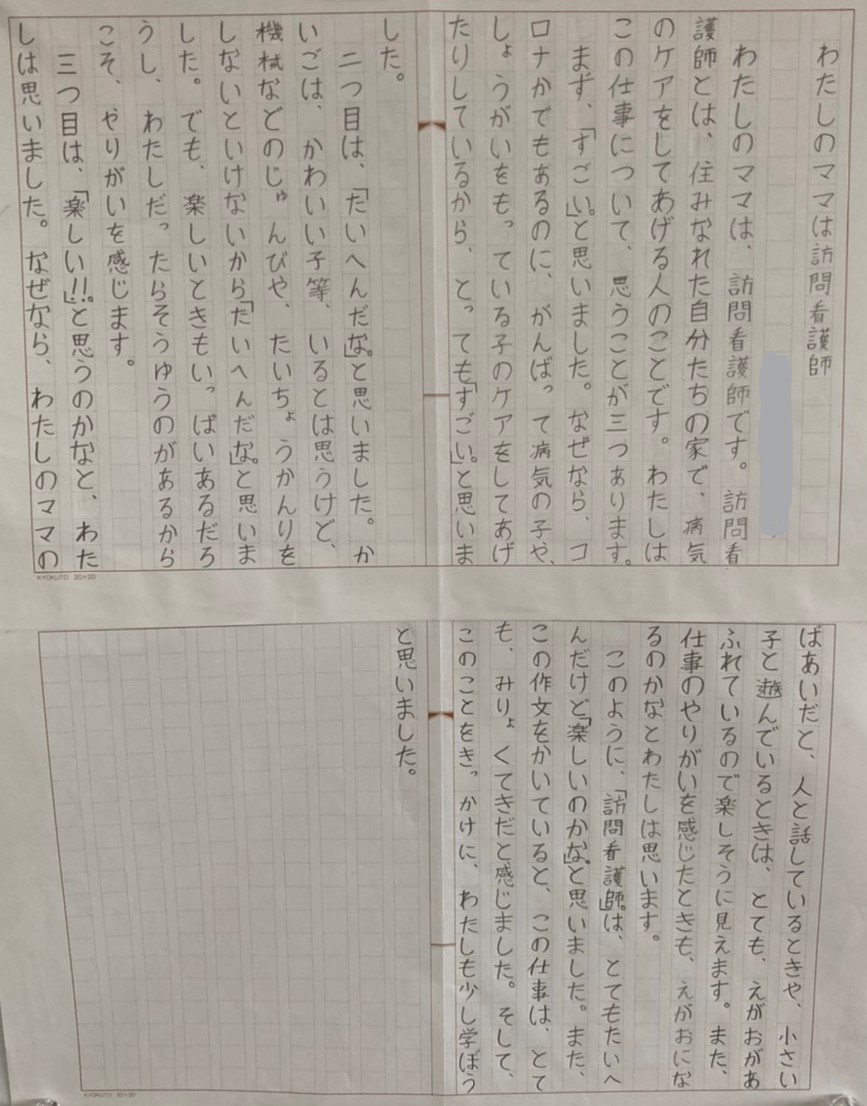 わたしのママは訪問看護師
わたしのママは、訪問看護師です。訪問看
護師とは、住みなれた自分たちの家で、病気
のケアをしてあげる人のことです。わたしは
この仕事について、思うことが三つあります。
まず、「すごい。」と思いました。なぜなら、コ
ロナかでもあるのに、がんばって病気の子や、
しょうがいをもっている子のケアをしてあげ
たりしているから、とっても「すごい。」と思いま
した。
二つ目は、「たいへんだな。」と思いました。か
いごは、かわいい子等、いるとは思うけど、
機械などのじゅんびや、たいちょうかんりを
しないといけないから「たいへんだな。」と思いま
した。でも、楽しいときもいっぱいあるだろ
うし、わたしだったらそうゆうのがあるから
こそ、やりがいを感じます。
三つ目は、「楽しい!!。」と思うのかなと、わた
しは思いました。なぜなら、わたしのママの
KYOKUTO 20×20
ばあいだと、人と話しているときや、小さい
子と遊んでいるときは、とても、えがおがあ
ふれているので楽しそうに見えます。また、
仕事のやりがいを感じたときも、えがおにな
るのかなとわたしは思います。
このように、「訪問看護師。」は、とてもたいへ
んだけど「楽しいのかな。」と思いました。また、
この作文をかいていると、この仕事は、とて
も、みりょくてきだと感じました。そして、
このことをきっかけに、わたしも少し学ぼう
と思いました。
KYOKUTO 20×20